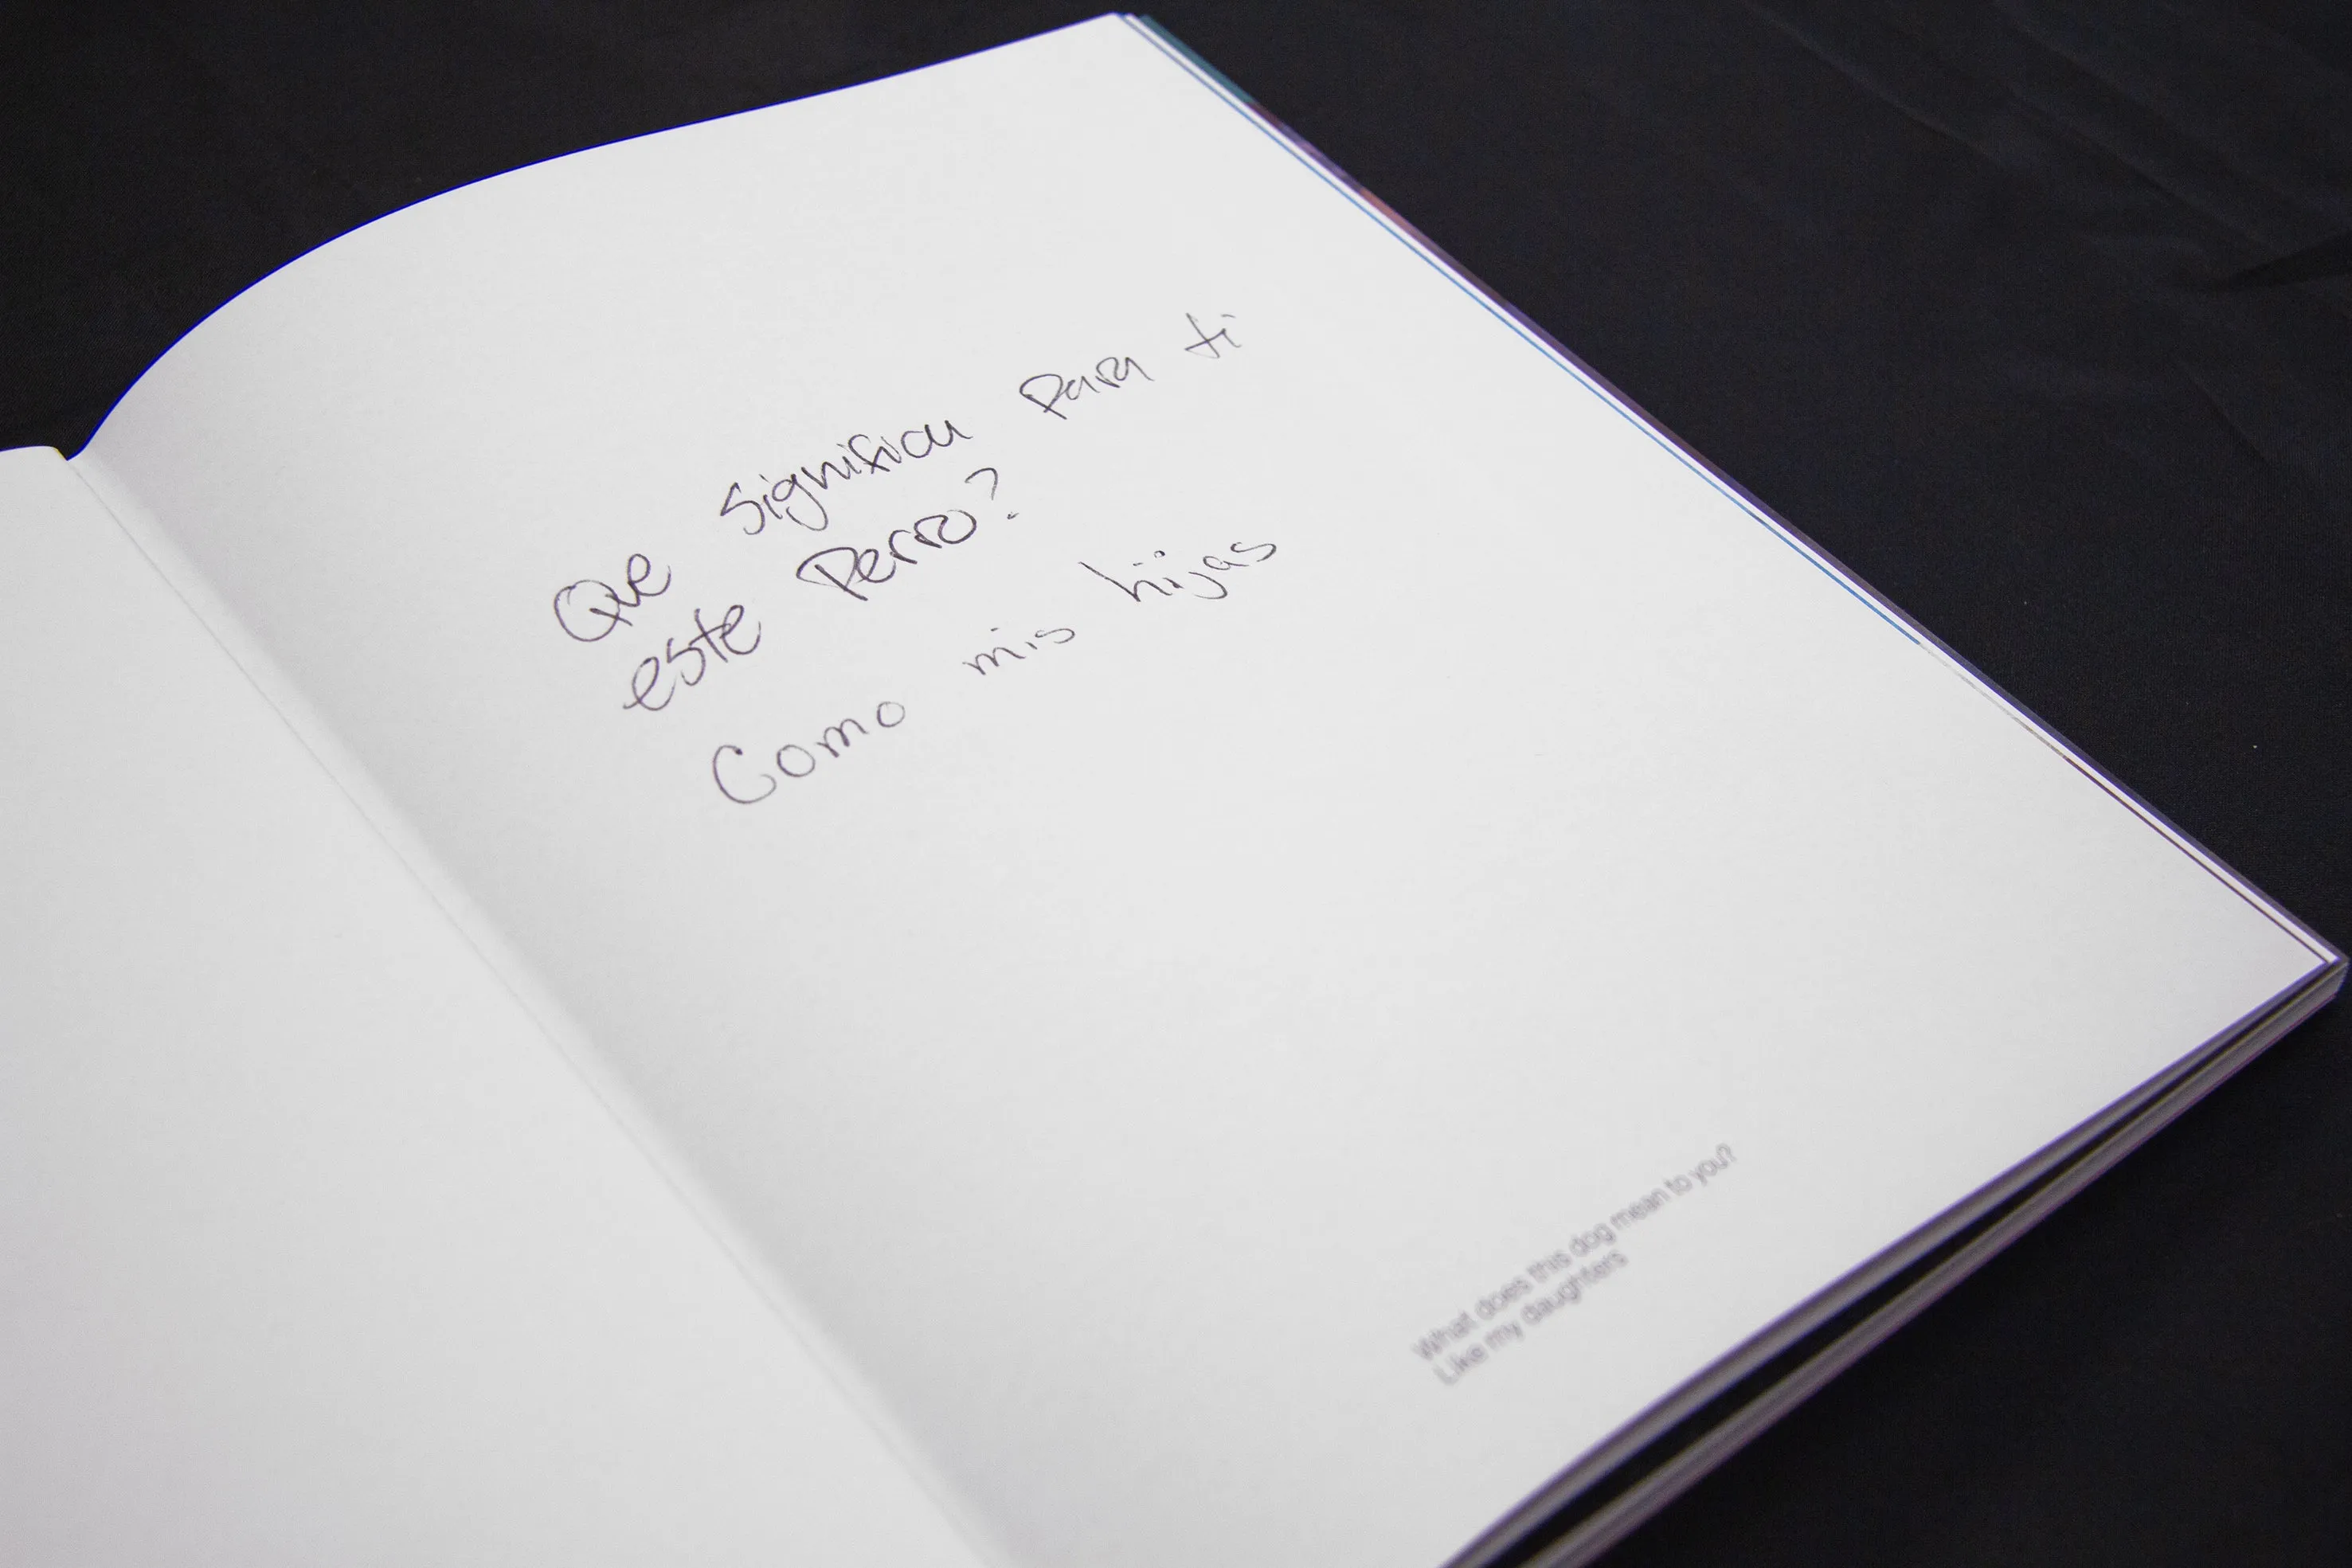 Que significa para ti
este Perro?
Como mis hijas
What does this dog mean to you?
Like my daughters